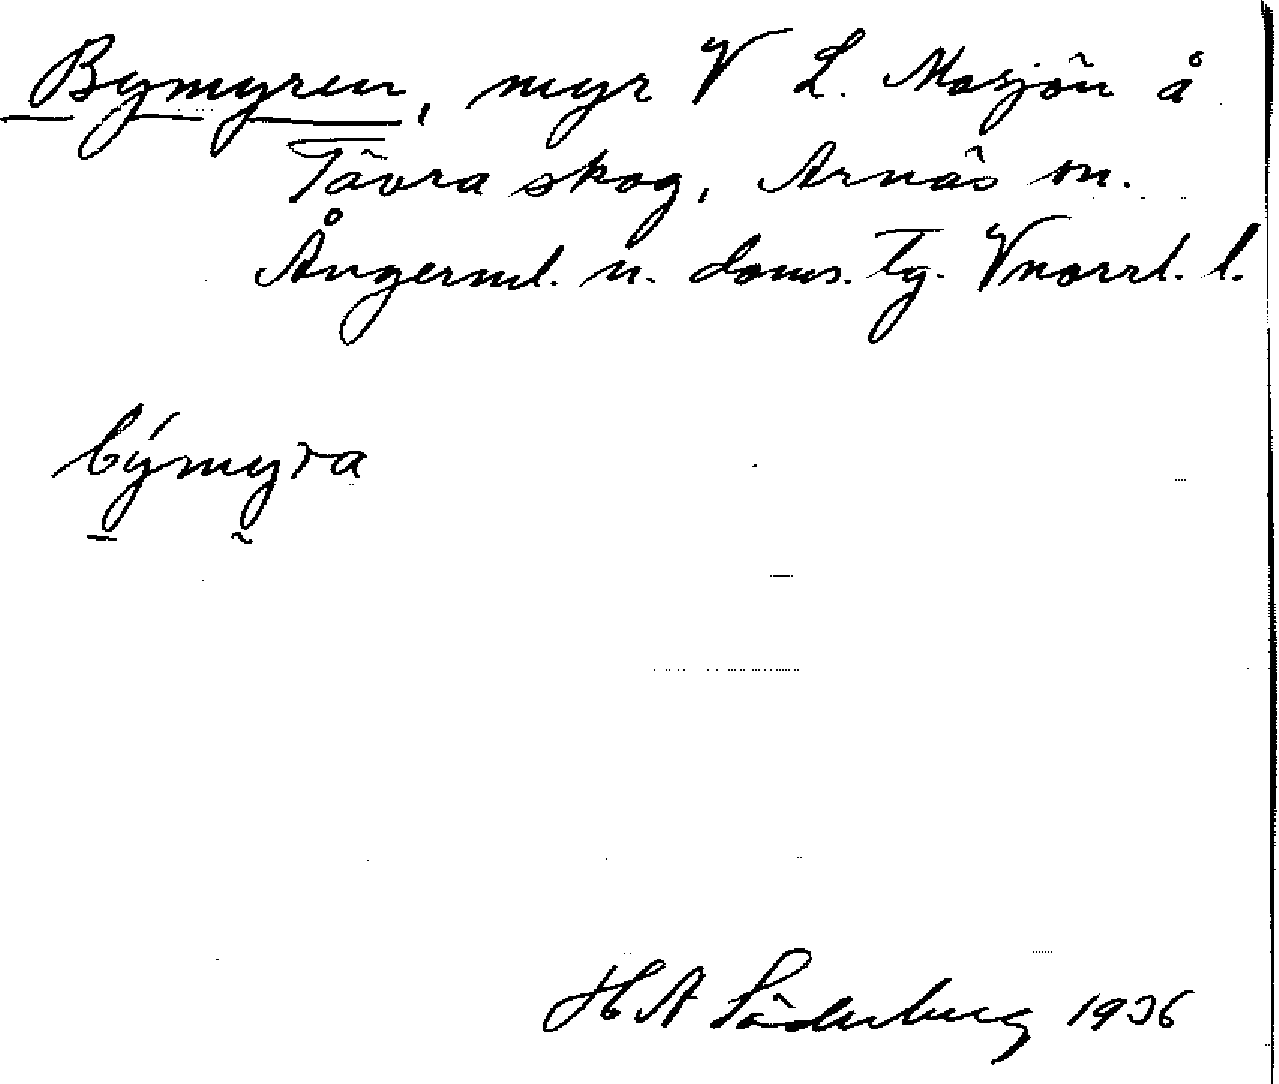 Bymyren, myr V L. Masjön å
Tävra skog, Arnäs sn.
Ångerml. n. doms. Tg. Vnorrl. l.
býmyra
H A Söderberg 1936